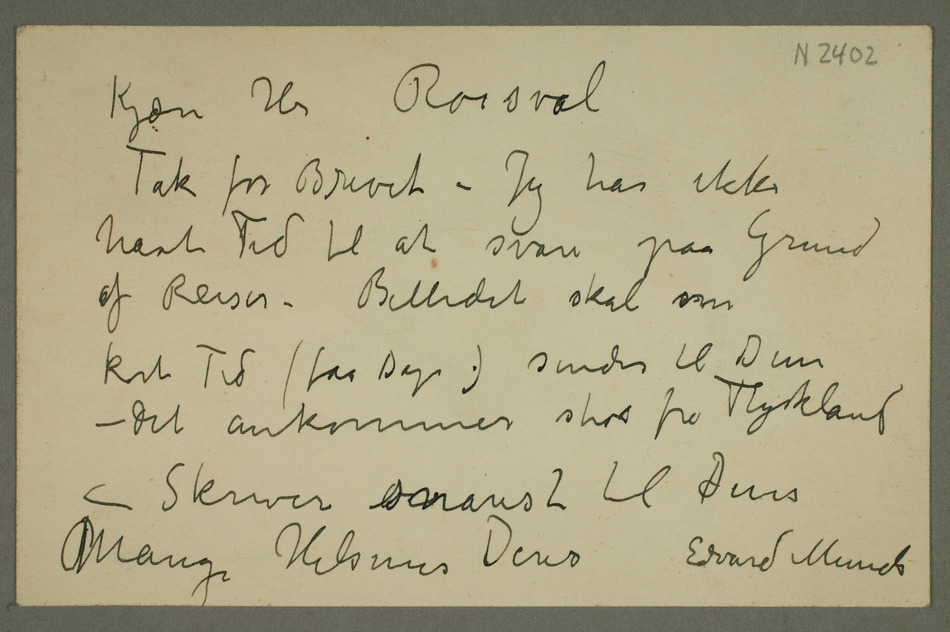 N 2402
Kjære Hr Roosval
Tak for Brevet – Jeg har ikke
havt Tid til at svare paa Grund
af Reiser – Billedet skal om
kort Tid (faa Dage) sendes til Dem
– Det ankommer strax fra Thyskland
– Skriver snarest til Dem
Mange Hilsener Deres Edvard Munch